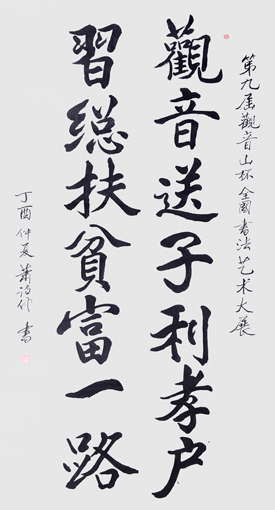 第九届觀音山杯全國書法艺术大展
觀音送子利孝户
習総扶貧富一路
丁酉仲夏 蕭 书